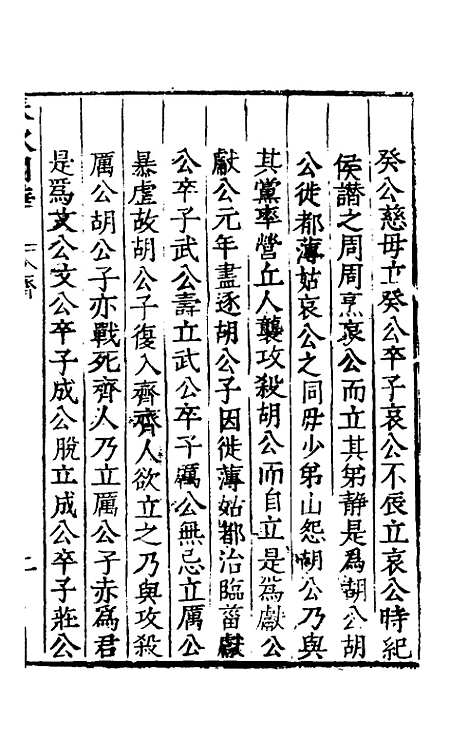 癸公慈母立癸公卒子哀公不辰立哀公時紀
侯譖之周周烹哀公而立其弟靜是爲胡公胡
公徙都薄姑哀公之同母少弟山怨胡公乃與
其黨率營丘人襲攻殺胡公而自立是爲獻公
獻公元年盡逐胡公子因徙薄姑都治臨菑獻
公卒子武公壽立武公卒子厲公無忌立厲公
暴虐故胡公子復入齊齊人欲立之乃與攻殺
厲公胡公子亦戰死齊人乃立厲公子赤爲君
是爲文公文公卒子成公脫立成公卒子莊公